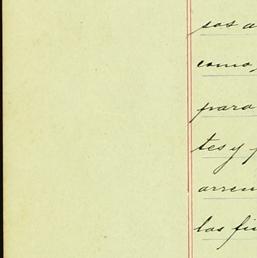 sos a
como,
para
tes y f
arren
las fi